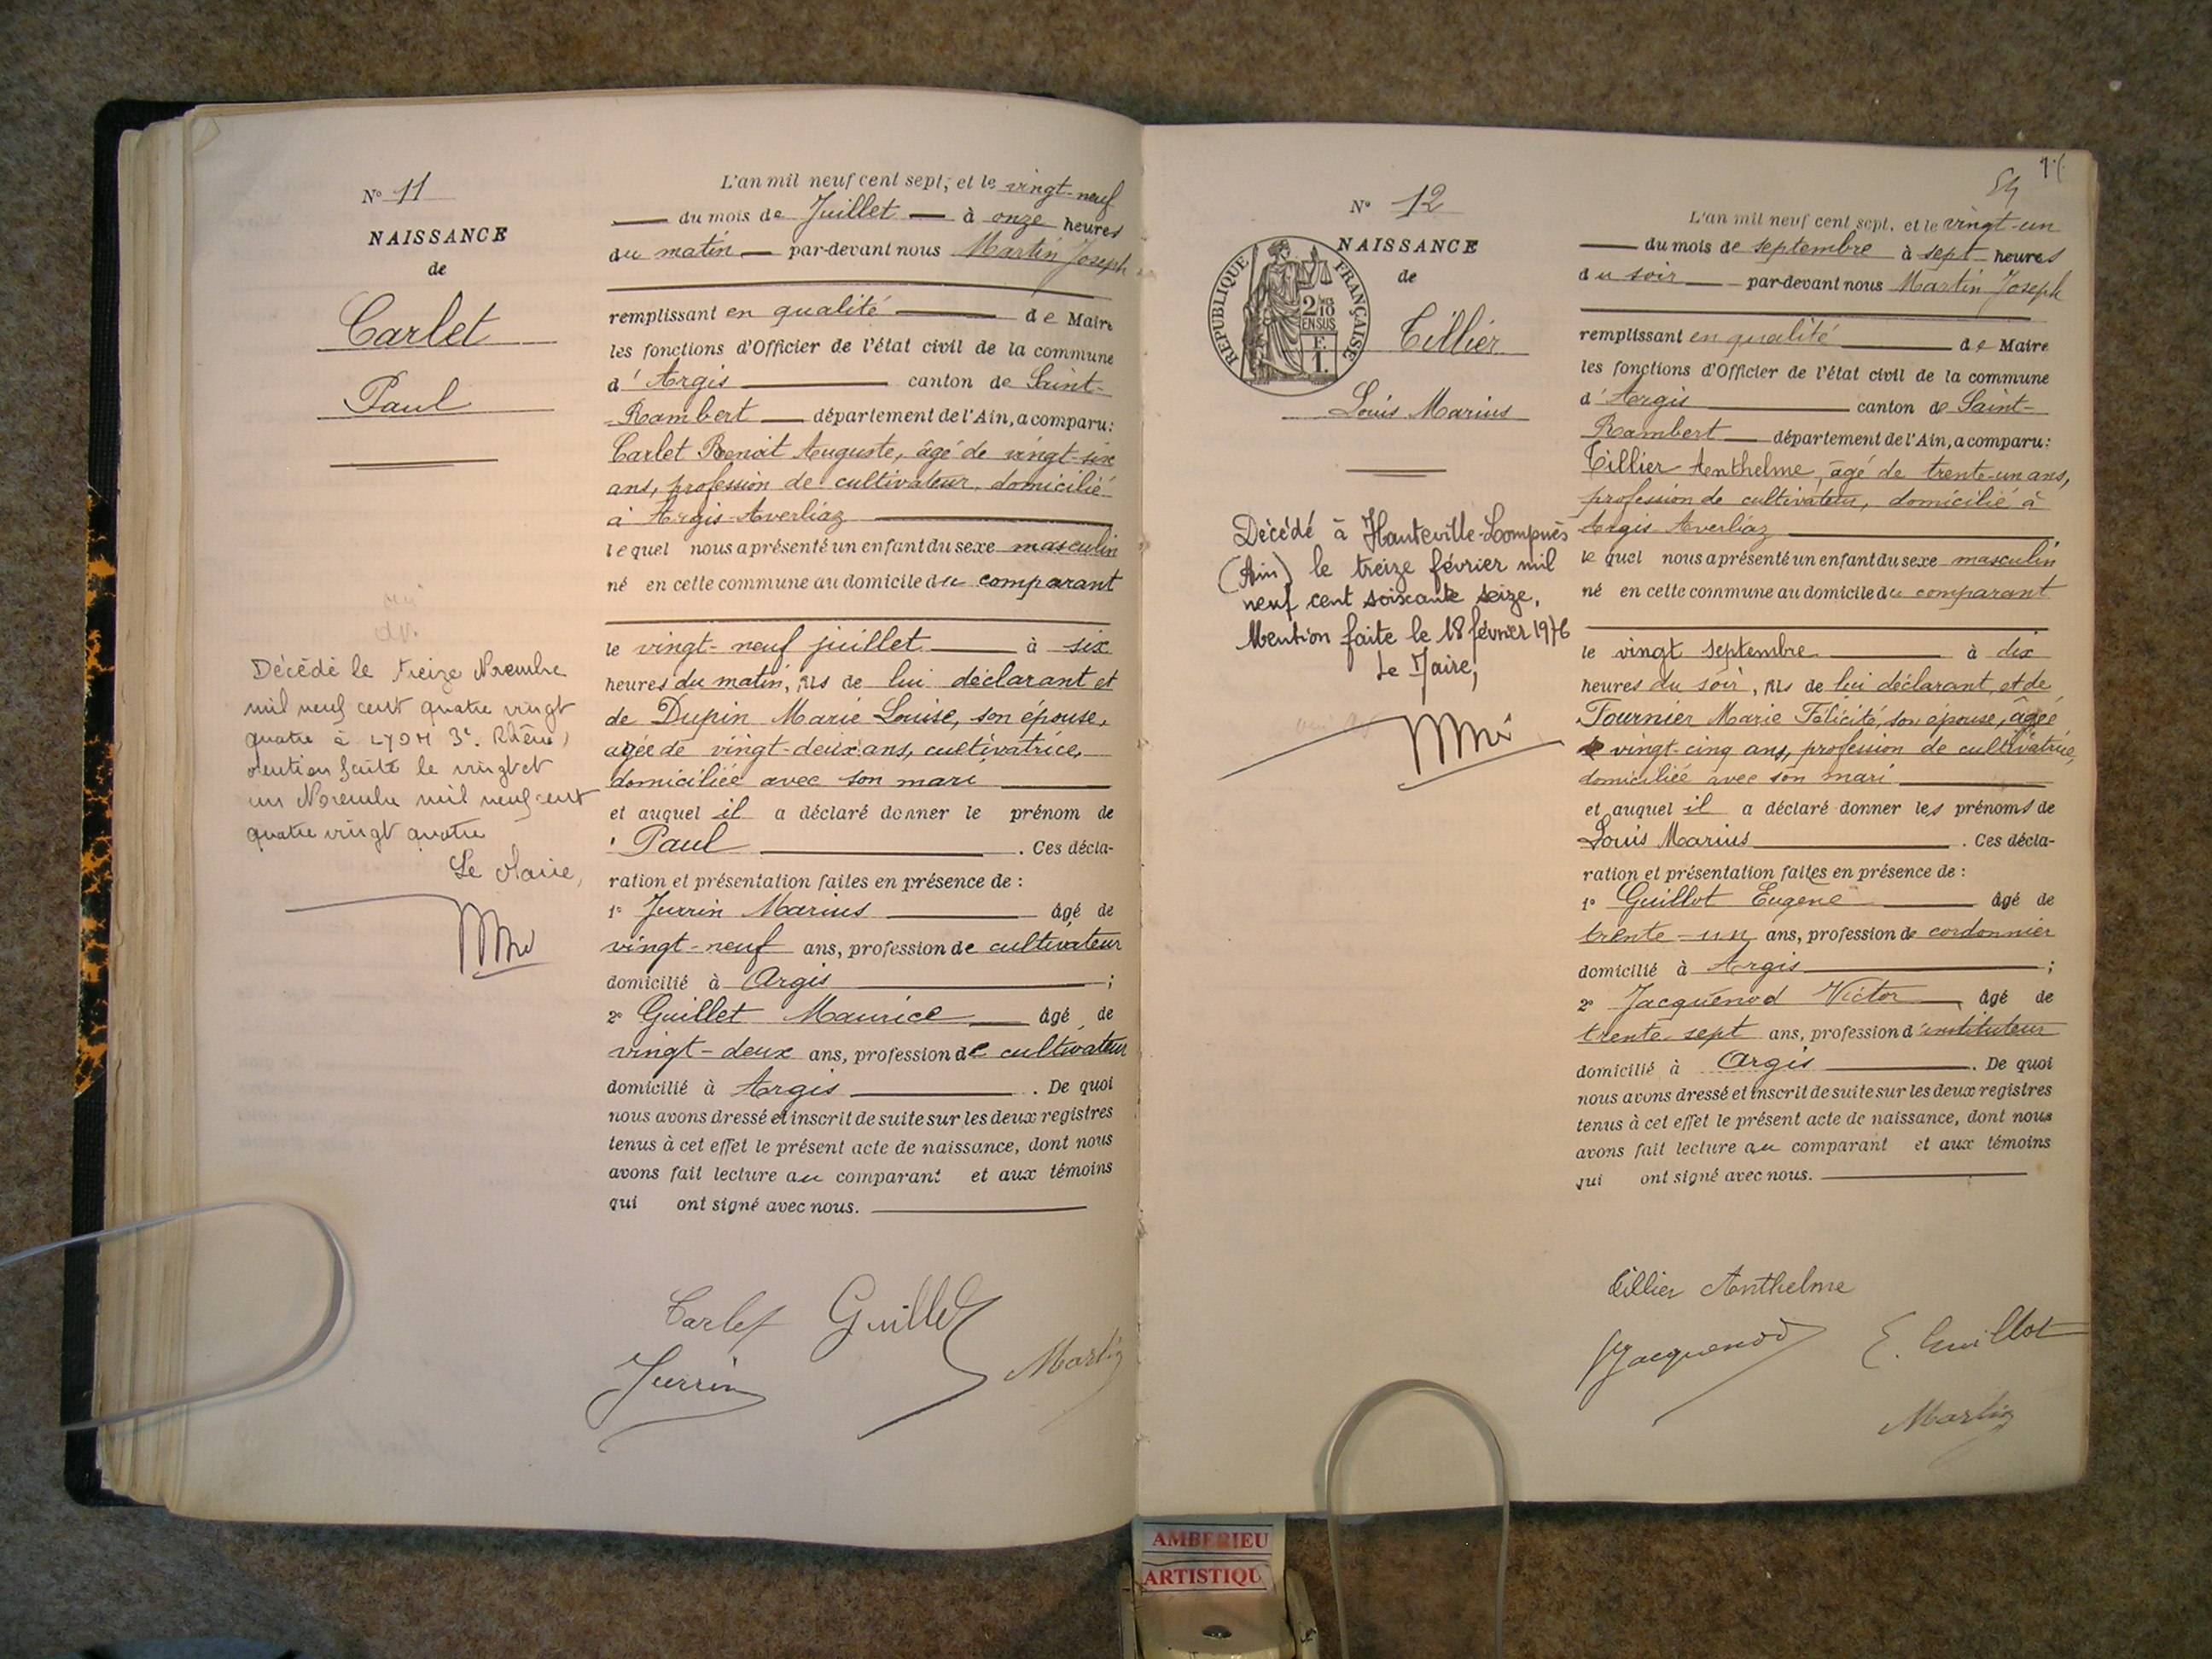 N° 11
NAISSANCE
de
Carlet
Paul
Décédé le treize Novembre
mil neuf cent quatre vingt
quatre à LYON 3e. Rhône)
Mention faite le vingt et
un Novembre mil neuf cent
quatre vingt quatre
Le Maire,
L'an mil neuf cent sept, et le vingt-neuf
du mois de Juillet à onze heures
du matin par-devant nous Martin Joseph
remplissant en qualité de Maire
les fonctions d'Officier de l'état civil de la commune
d'Argis canton de Saint-
Rambert département de l'Ain, a comparu:
Carlet Benoit Auguste, âgé de vingt-six
ans, profession de cultivateur, domicilié
à Argis-Averliaz
lequel nous a présenté un enfant du sexe masculin
né en cette commune au domicile du comparant
le vingt-neuf juillet à six
heures du matin, fils de lui déclarant et
de Dupin Marie Louise, son épouse,
agée de vingt-deux ans, cultivatrice,
domiciliée avec son mari
et auquel il a déclaré donner le prénom de
Paul . Ces décla-
ration et présentation faites en présence de :
1° Jurrin Marius âgé de
vingt-neuf ans, profession de cultivateur
domicilié à Argis ;
2° Guillet Maurice âgé de
vingt-deux ans, profession de cultivateur
domicilié à Argis . De quoi
nous avons dressé et inscrit de suite sur les deux registres
tenus à cet effet le présent acte de naissance, dont nous
avons fait lecture au comparant et aux témoins
qui ont signé avec nous.
Carlet Guillet
Jurrin Martin
54
N° 12
NAISSANCE
de
RÉPUBLIQUE FRANÇAISE
2/10
EN SUS
F.
1.
Tillier
Louis Marius
Décédé à Hauteville-Lompnès
(Ain) le treize février mil
neuf cent soixante seize.
Mention faite le 18 février 1976
Le Maire,
L'an mil neuf cent sept, et le vingt-un
du mois de septembre à sept heures
du soir par-devant nous Martin Joseph
remplissant en qualité de Maire
les fonctions d'Officier de l'état civil de la commune
d'Argis canton de Saint-
Rambert département de l'Ain, a comparu:
Tillier Anthelme, âgé de trente-un ans,
profession de cultivateur, domicilié à
Argis Averliaz
lequel nous a présenté un enfant du sexe masculin
né en cette commune au domicile du comparant
le vingt septembre à dix
heures du soir, fils de lui déclarant, et de
Fournier Marie Félicité, son épouse, âgée
de vingt-cinq ans, profession de cultivatrice,
domiciliée avec son mari
et auquel il a déclaré donner les prénoms de
Louis Marius . Ces décla-
ration et présentation faites en présence de :
1° Guillot Eugene âgé de
trente-un ans, profession de cordonnier
domicilié à Argis ;
2° Jacquenod Victor âgé de
trente-sept ans, profession d'instituteur
domicilié à Argis . De quoi
nous avons dressé et inscrit de suite sur les deux registres
tenus à cet effet le présent acte de naissance, dont nous
avons fait lecture au comparant et aux témoins
qui ont signé avec nous.
Tillier Anthelme
Jacquenod E. Guillot
Martin
AMBERIEU
ARTISTIQU